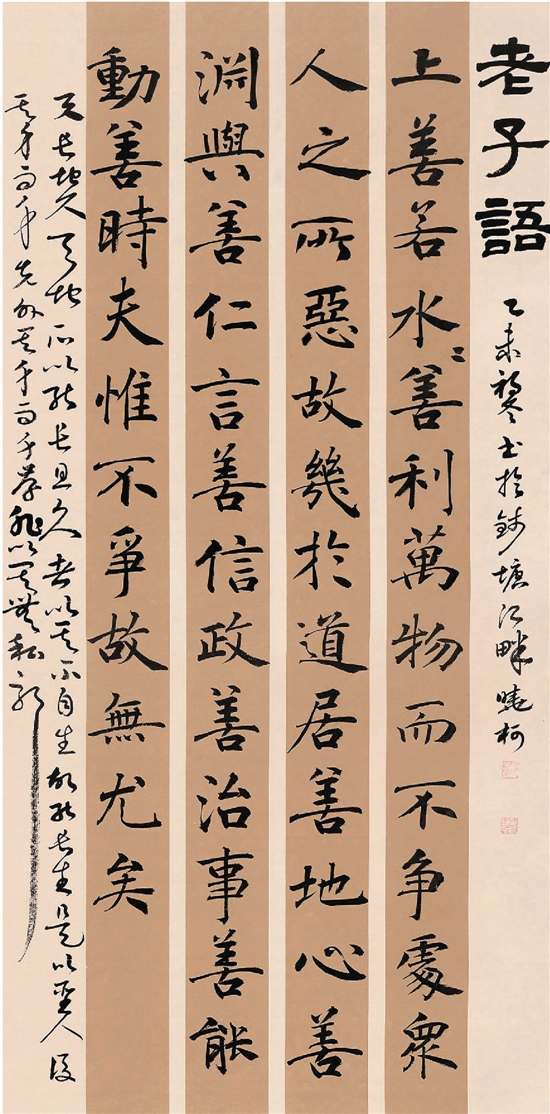 老子語
乙未初冬书於錢塘江畔曉柯
上善若水〻善利萬物而不争處衆
人之所惡故幾於道居善地心善
淵與善仁言善信政善治事善能
動善時夫惟不爭故無尤矣
天長地久天地所以能長且久者以其不自生故能長生是以聖人後
其身而身先外其身而身存非以其無私邪